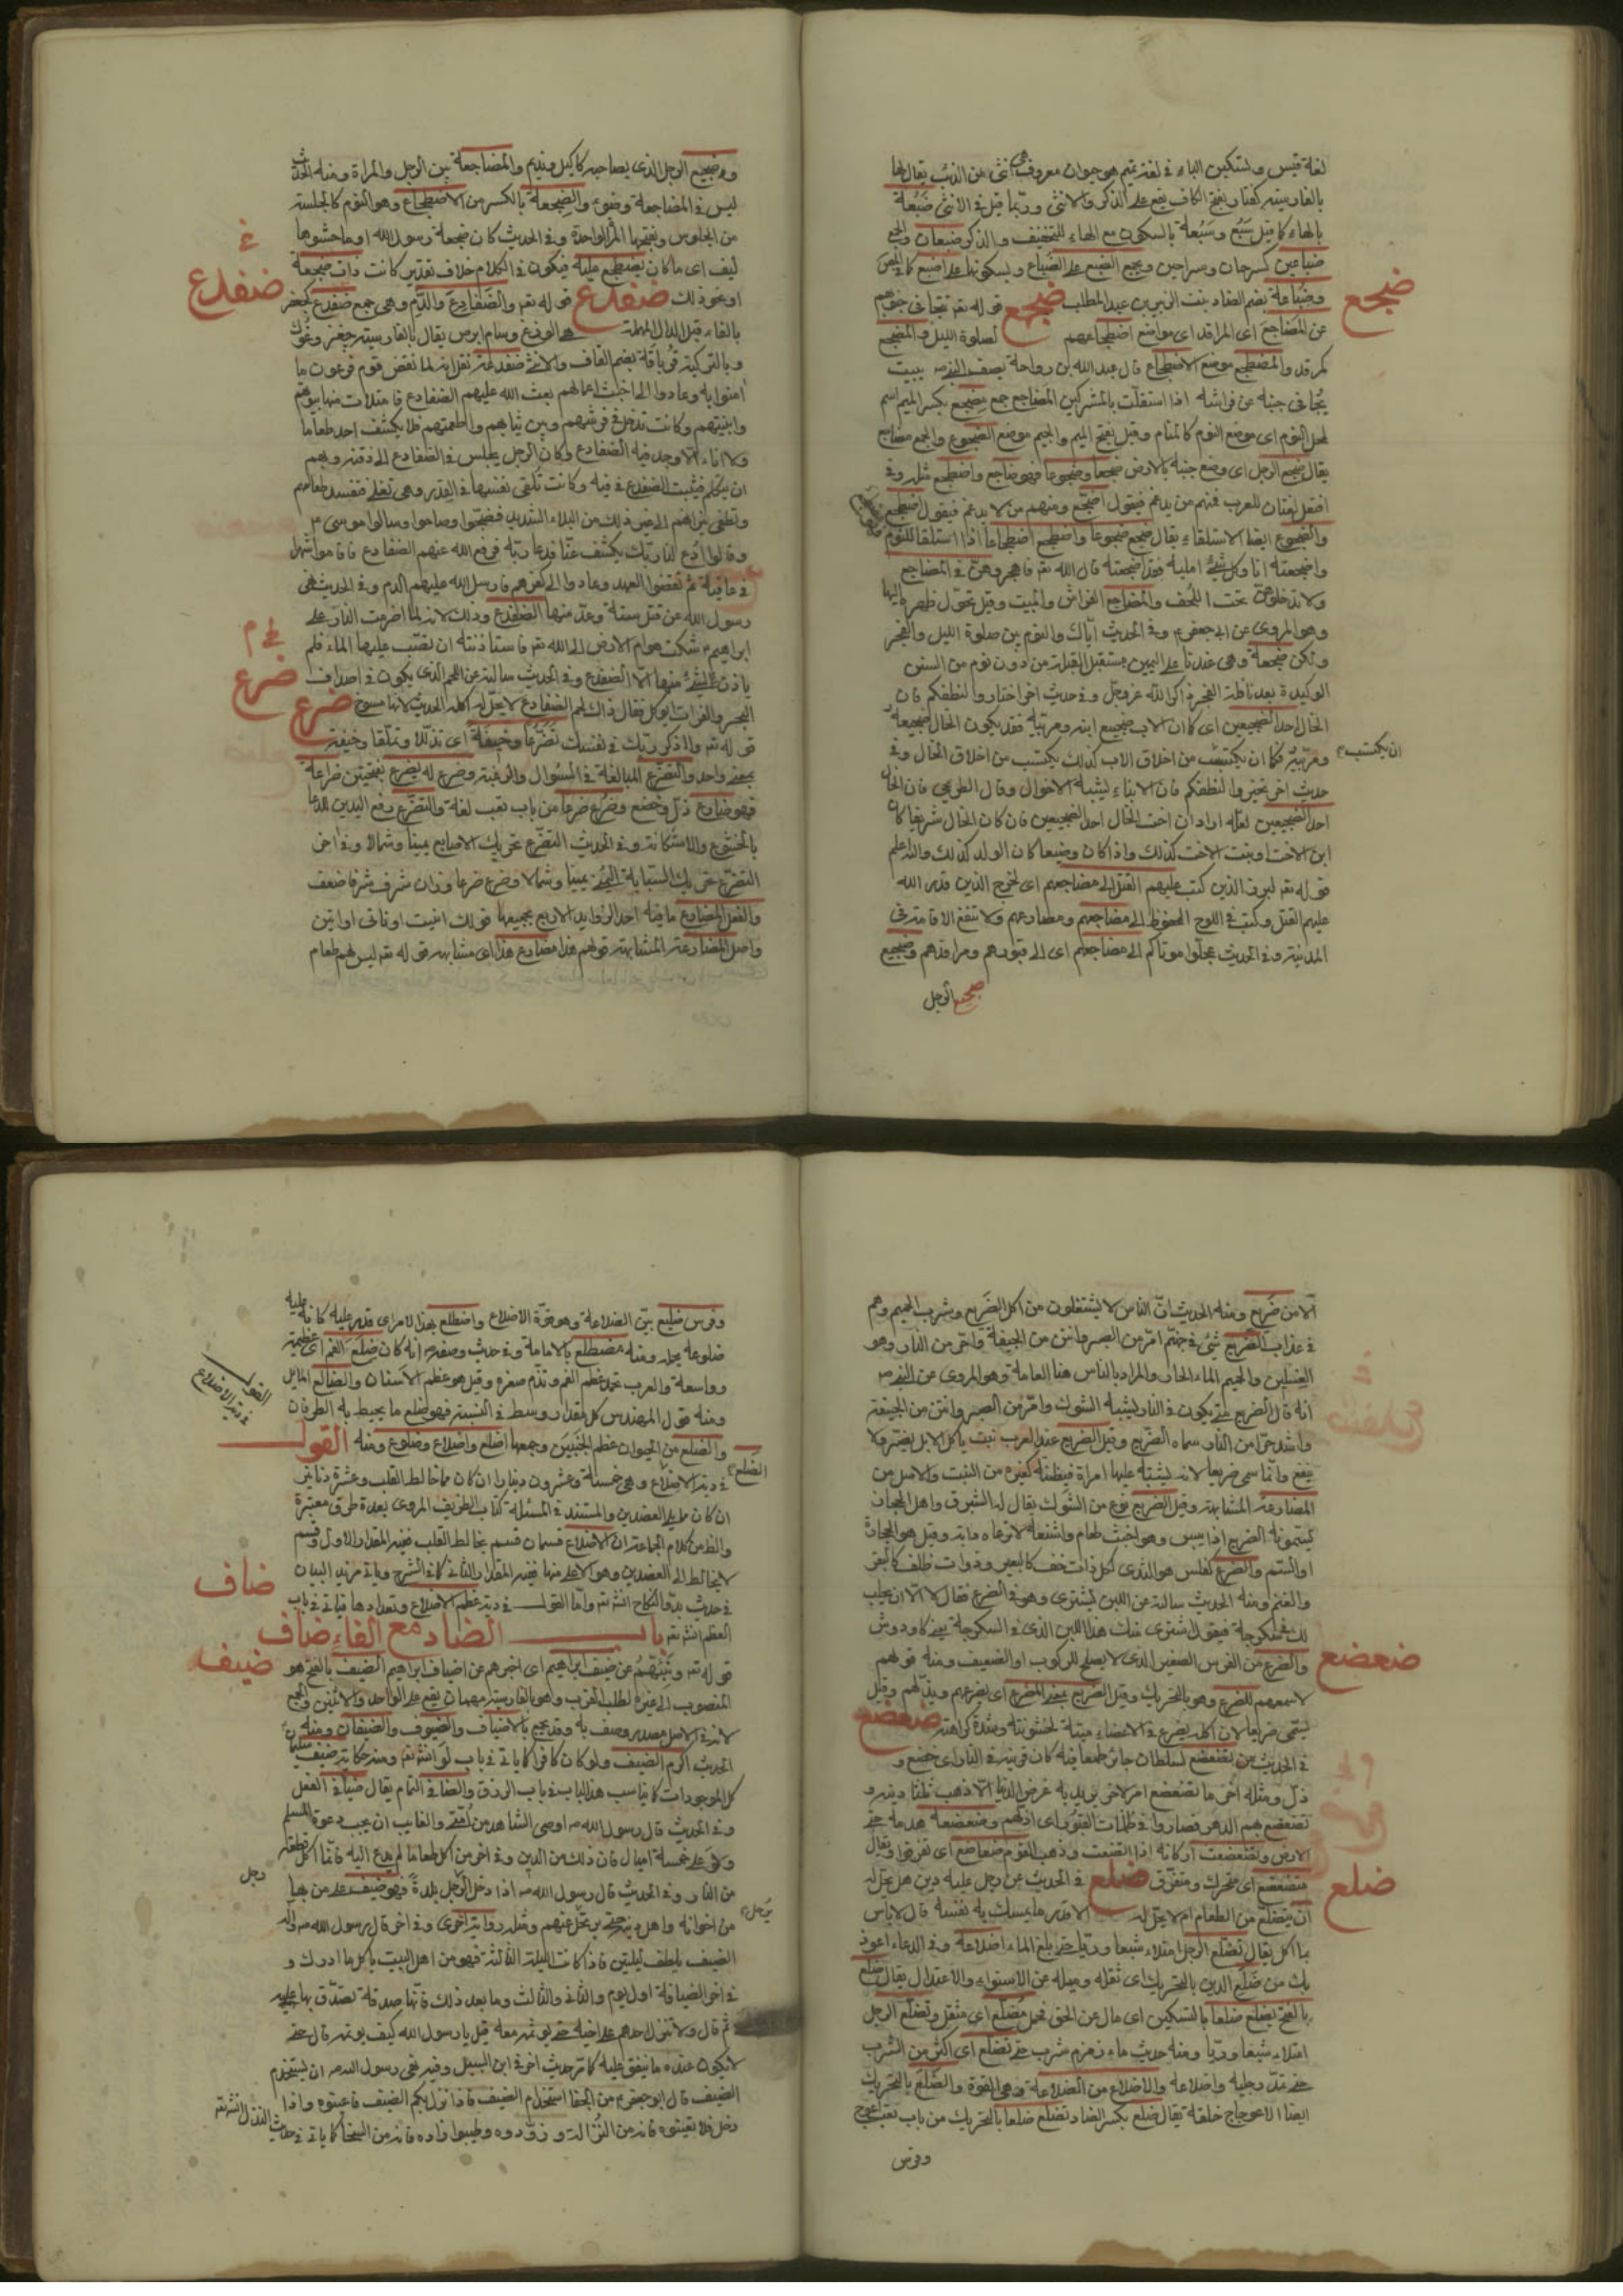 لغة قيس وبتسكين الباء في لغة تميم هو حيوان معروف هي انثى من الذئب يقال لها
بالفارسية كفتار بفتح الكاف يقع على الذكر والانثى وربما قيل في الانثى ضبعة
بالهاء كما قيل سبع وسبعة بالسكون مع الهاء للتخفيف والذكر ضبعان والجمع
ضباعين كسرحان وسراحين ويجمع الضبع على الضباع وبسكونها على اضبع
وضباعة بضم الضاد بنت الزبير بن عبد المطلب ضجع قوله تع تتجافى جنوبهم
ضجع
عن المضاجع اى المراقد اى مواضع اضطجاعهم لصلوة الليل والمضجع
كمرقد والمضطجع موضع الاضطجاع قال عبد الله بن رواحة يصف النبي ص يبيت
يجافي جنبه عن فراشه اذا استقلت بالمشركين المضاجع جمع مضجع بكسر الميم اسم
لمحل النوم اى موضع النوم كالمنام وقيل بفتح الميم والجيم موضع الضجوع والجمع مضاجع
يقال ضجع الرجل اى وضع جنبه بالارض ضجعا وضجوعا فهو ضاجع واضطجع مثله وفي
افتعل لغتان للعرب فمنهم من يدغم فيقول اضجع ومنهم من لا يدغم فيقول اضطجع
والضجوع ايضا الاستلقاء يقال ضجع ضجوعا واضطجع اضطجاعا اذا استلقا للنوم
واضجعته انا وكل شئ امليه فقد اضجعته قال الله تع فاهجروهن في المضاجع
ولا تدخلوهن تحت اللحف والمضاجع الفراش والمبيت وقيل تحول ظهره اليها
وهو المروى عن ابي جعفر ع وفي الحديث اياك والنوم بين صلوة الليل والفجر
ولكن ضجعة وهي عندنا على اليمين مستقبل القبلة من دون نوم من السنن
الوكيدة بعد نافلة الفجر ذاكرا لله عز وجل وفي حديث اخر اختاروا لنطفكم فان
الخال احد الضجيعين اى كما ان الاب ضجيع ابنه ومربيه فقد يكون الخال ضجيعه
ومربيه فكما ان يكتسب من اخلاق الاب كذلك يكتسب من اخلاق الخال وفي
ان يكتسب
حديث اخر تخيروا لنطفكم فان الابناء ليشبه الاخوال وقال الطريحي فان الخال
احد الضجيعين لعله اراد ان اخت الخال احد الضجيعين فان كان الخال شريفا كان
ابن الاخت او بنت الاخت كذلك واذا كان وضيعا كان الولد كذلك والله اعلم
قوله تع لبرز الذين كتب عليهم القتل الى مضاجعهم اى لخرج الذين قدر الله
عليهم القتل وكتب في اللوح المحفوظ الى مضاجعهم ومصارعهم ولا تنفع الاقامة في
المدينة وفي الحديث عجلوا موتاكم الى مضاجعهم اى الى قبورهم ومراقدهم وضجيع
ضجيع الرجل
وضجيع الرجل الذى يصاحبه كاكيل ونديم والمضاجعة بين الرجل والمراة ومنه الحديث
ليس في المضاجعة وضوء والضجعة بالكسر من الاضطجاع وهو النوم كالجلسة
من الجلوس وبفتحها المرة الواحدة وفي الحديث كان ضجعة رسول الله ادما حشوها
ليف اى ما كان يضطجع عليه فيكون في الكلام خلاف تقدير كانت ذات ضجعة
او نحو ذلك ضفدع قوله تع والضفادع والدم وهي جمع ضفدع كجعفر
ضفدع
بالفاء قبل الدال المهملة يقال بالفارسية
وبالتركية قرباقه بضم القاف والانثى ضفدعة نقل انه لما نقض قوم فرعون ما
امنوا به وعادوا الى اخبث اعمالهم بعث الله عليهم الضفادع فامتلات منها بيوتهم
وابنيتهم وكانت تدخل في فرشهم وبين ثيابهم واطعمتهم فلا يكشف احد طعاما
ولا اناء الا وجد فيه الضفادع وكان الرجل يجلس في الضفادع الى ذقنه ويهم
ان يتكلم فيثبت الضفدع في فيه وكانت تلقى نفسها في القدر وهي تغلي فتفسد طعامهم
وتطفى نيرانهم الى غير ذلك من البلاء الشديد فضجوا وصاحوا وسالوا موسى ع
وقالوا ادع لنا ربك يكشف عنا فدعا ربه فرفع الله عنهم الضفادع فاقاموا شهرا
في عافية ثم نقضوا العهد وعادوا الى كفرهم فارسل الله عليهم الدم وفي الحديث نهى
رسول الله عن قتل ستة وعد منها الضفدع وذلك لانه لما اضرمت النار على
ابراهيم ع شكت هوام الارض الى الله تع فاستاذنته ان تصب عليها الماء فلم
ياذن لشئ منها الا الضفدع وفي الحديث سالته عن اللحم الذى يكون في اصداف
ضرع
البحر والفرات ايوكل فقال ذاك لحم الضفادع لا يحل اكله الحديث لانها مسوخ ضرع
قوله تع واذكر ربك في نفسك تضرعا وخيفة اى تذللا وتملقا وخيفة
بمعنى واحد والتضرع المبالغة في السئوال والرغبة وضرع له يضرع بفتحتين ضراعة
فهو ضارع ذل وخضع وضرع ضرعا من باب تعب لغة والتضرع رفع اليدين للدعا
بالخشوع والاستكانة وفي الحديث التضرع تحريك الاصابع يمينا وشمالا وفي اخر
التضرع تحريك السبابة اليمنى يمينا وشمالا وضرع ضرعا وزان شرف شرفا ضعف
والفعل المضارع ما فيه احد الزوايد الاربع يجمعها قولك انيت او ناتي او اتين
واصل المضارعة المشابهة قولهم هذا مضارع هذا اى مشابهه قوله تع ليس لهم طعام
الا من ضريع ومنه الحديث ان الناس لا يشتغلون من اكل الضريع وشرب الحميم وهم
في عذاب الضريع شئ في جهنم امر من الصبر وانتن من الجيفة واحر من النار وهو
الغسلين والحميم الماء الحار والمراد بالناس هنا العامة وهو المروى عن النبي ص
انه قال الضريع شئ يكون في النار يشبه الشوك وامر من الصبر وانتن من الجيفة
واشد حرا من النار سماه الضريع وقيل الضريع عند العرب نبت ياكل الابل يضر ولا
ينفع وانما سمى ضريعا لانه يشتبه عليها امره فيظنه كغيره من النبت والاصل من
المضارعة المشابهة وقيل الضريع نوع من الشوك يقال له الشبرق واهل الحجاز
يسمونه الضريع اذا يبس وهو اخبث طعام واشنعه لا ترعاه دابة وقيل هو الحجارة
او السم والضرع كفلس هو الثدى لكل ذات خف كالبعير وذوات ظلف كالبقر
والغنم ومنه الحديث سالته عن اللبن يشترى وهو في الضرع فقال لا الا ان يحلب
لك سكرجة فيقول اشترى منك هذا اللبن الذى في السكرجة
والضرع من الفرس الصغير الذى لا يصلح للركوب او الضعيف ومنه قولهم
ضعضع
وهو بالتحريك وقيل الضريع بمعنى المضرع اى يضرعهم ويذلهم وقيل
يسمى ضريعا لان اكله يضرع في الاعضاء ميتة لخشونته وشدة كراهته ضعضع
في الحديث من تضعضع لسلطان جائر طمعا فيه كان قرينه في النار اى خضع و
ذل ومثله اخر ما تضعضع امرء لاخر يريد به عرض الدنيا الا ذهب ثلثا دينه و
تضعضع بهم الدهر فصاروا في ظلمات القبور اى اذلهم وضعضعه هدمه حتى
الارض وتضعضعت اركانه اذا اتضعت وذهب القوم ضعاضع اى تفرقوا ويقال
متضعضع اى متحرك ومتفرق ضلع في الحديث عن رجل عليه دين هل يحل له
ضلع
ان يتضلع من الطعام ام لا يحل له الا قدر ما يمسك به نفسه قال لا باس
بما اكل يقال تضلع الرجل امتلاء شبعا وريا حتى بلغ الماء اضلاعه وفي الدعاء اعوذ
بك من ضلع الدين بالتحريك اى ثقله وميله عن الاستواء والاعتدال يقال ضلع
بالفتح يضلع ضلعا بالتسكين اى مال عن الحق فحمل مضلع اى مثقل وتضلع الرجل
امتلاء شبعا وريا ومنه حديث ماء زمزم شرب حتى تضلع اى اكثر من الشرب
حتى تمدد جنبه واضلاعه والاضلاع من الضلاعة وهي القوة والضلع بالتحريك
ايضا الاعوجاج خلقة يقال ضلع بكسر الضاد تضلع ضلعا بالتحريك من باب تعب اعوج
وفرس
وفرس ضليع بين الضلاعة وهو قوة الاضلاع واضطلع بهذا الامر اى قدر عليه كانه عليه
ضلوعه بحمله ومنه مضطلع بالامامة وفي حديث وصفه ص انه كان ضليع الفم اى عظيمه
وواسعه والعرب تمدح عظم الفم وتذم صغره وقيل هو عظم الاسنان والضالع المايل
ومنه قول المهندس كل مقدار وسط في النسبة فهو ضلع ما يحيط به الطرفان
القول في دية الاضلاع
والضلع من الحيوان عظم الجنبين وجمعها اضلع واضلاع وضلوع ومنه القول
الضلع
في دية الاضلاع وهي خمسة وعشرون دينارا ان كان مما خالط القلب وعشرة دنانير
ان كان مما يلي العضدين والمستند في المسئلة كتاب الظريف المروى بعدة طرق معتبرة
والظ من كلام الجماعة ان الاضلاع قسمان قسم يخالط القلب ففيه المقدار الاول وقسم
لا يخالط الى العضدين وهو الاعلى منها ففيه المقدار الثاني كما في الشرح وياتي مزيد البيان
ضاف
في حديث بدو النكاح انش تع واما القول في دية عظم الاضلاع وتعدادها فياتي في باب
العظم انش تع باب الضاد مع الفاء ضاف
ضيف
قوله تع ونبئهم عن ضيف ابراهيم اى اخبرهم عن اضياف ابراهيم الضيف بالفتح هو
المنصوب الى غيره لطلب القرب وهو بالفارسية مهمان يقع على الواحد والاثنين والجمع
لانه في الاصل مصدر وصف به وقد يجمع بالاضياف والضيوف والضيفان ومنه
الحديث اكرم الضيف ولو كان كافرا كما ياتي في باب لو انش تع ومنه حكاية ضيف
كل الموجودات كما يناسب هذا الباب في باب الرزق
وفي الحديث قال رسول الله ص اوصى الشاهد من امتي والغايب ان يجيب دعوة المسلم
ولو على خمسة اميال فان ذلك من الدين وفي اخر من اكل طعاما لم يدع اليه فانما اكل قطعة
من النار وفي الحديث قال رسول الله ص اذا دخل الرجل بلدة فهو ضيف على من بها
رجل
من اخوانه واهل دينه حتى يرحل عنهم ومثله رواية اخرى وفي اخر قال رسول الله ص واله
يرحل
الضيف يلطف ليلتين فاذا كانت الليلة الثالثة فهو من اهل البيت ياكل ما ادرك و
في اخر الضيافة اول يوم والثاني والثالث وما بعد ذلك فانها صدقة تصدق بها عليه
ثم قال ولا تنزل احدهم على اخيه حتى يوثمه معه قيل يا رسول الله كيف يوثمه قال حتى
لا يكون عنده ما ينفق عليه كما مر حديث اخر في ابن السبيل وفيه نهى رسول الله ص ان يستخدم
الضيف قال ابو جعفر ع من الجفا استخدام الضيف فاذا نزل بكم الضيف فاعينوه واذا
رحل فلا تعينوه فانه من النذالة وزودوه وطيبوا زاده فانه من السخا كما ياتي في حديث النزل انش تع